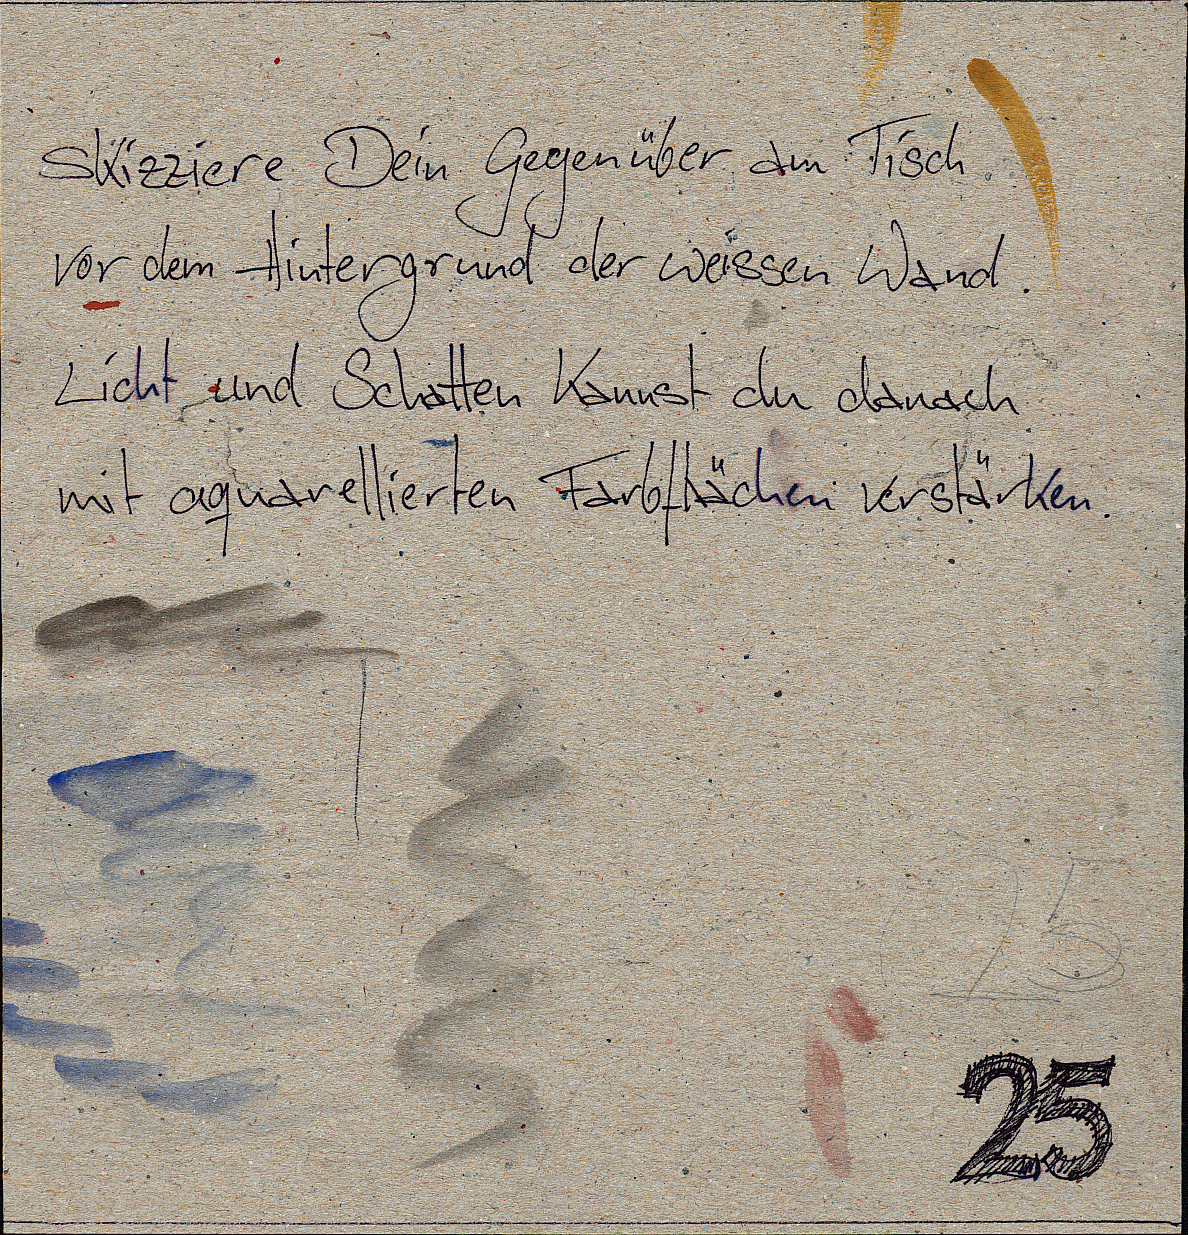 Skizziere Dein Gegenüber am Tisch
vor dem Hintergrund der weissen Wand.
Licht und Schatten kannst du danach
mit aquarellierten Farbflächen verstärken.
25
25